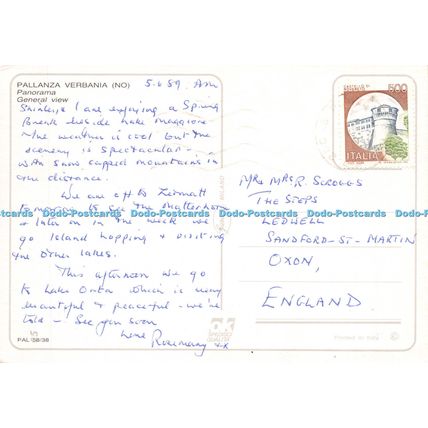 PALLANZA VERBANIA (NO)
Panorama
General view
5.6.89. Am
I are enjoying a Spring
Break beside Lake Maggiore
The weather is cool but the
scenery is spectacular -
with snow capped mountains in
the distance.
We are off to Zermatt
tomorrow to see the Matterhorn
& later on in the week we
go Island hopping & visiting
the other lakes.
This afternoon we go
to Lake Orta which is very
beautiful & peaceful - we're
told - See you soon
Love
Rosemary xx
PAL 58/38
500
ITALIA
Mr & Mrs R. Scroggs
THE STEPS
LEDWELL
SANDFORD-ST-MARTIN
OXON,
ENGLAND
Printed in Italy
Dodo-Postcards Dodo-Postcards Dodo-Postcards Dodo-Postcards